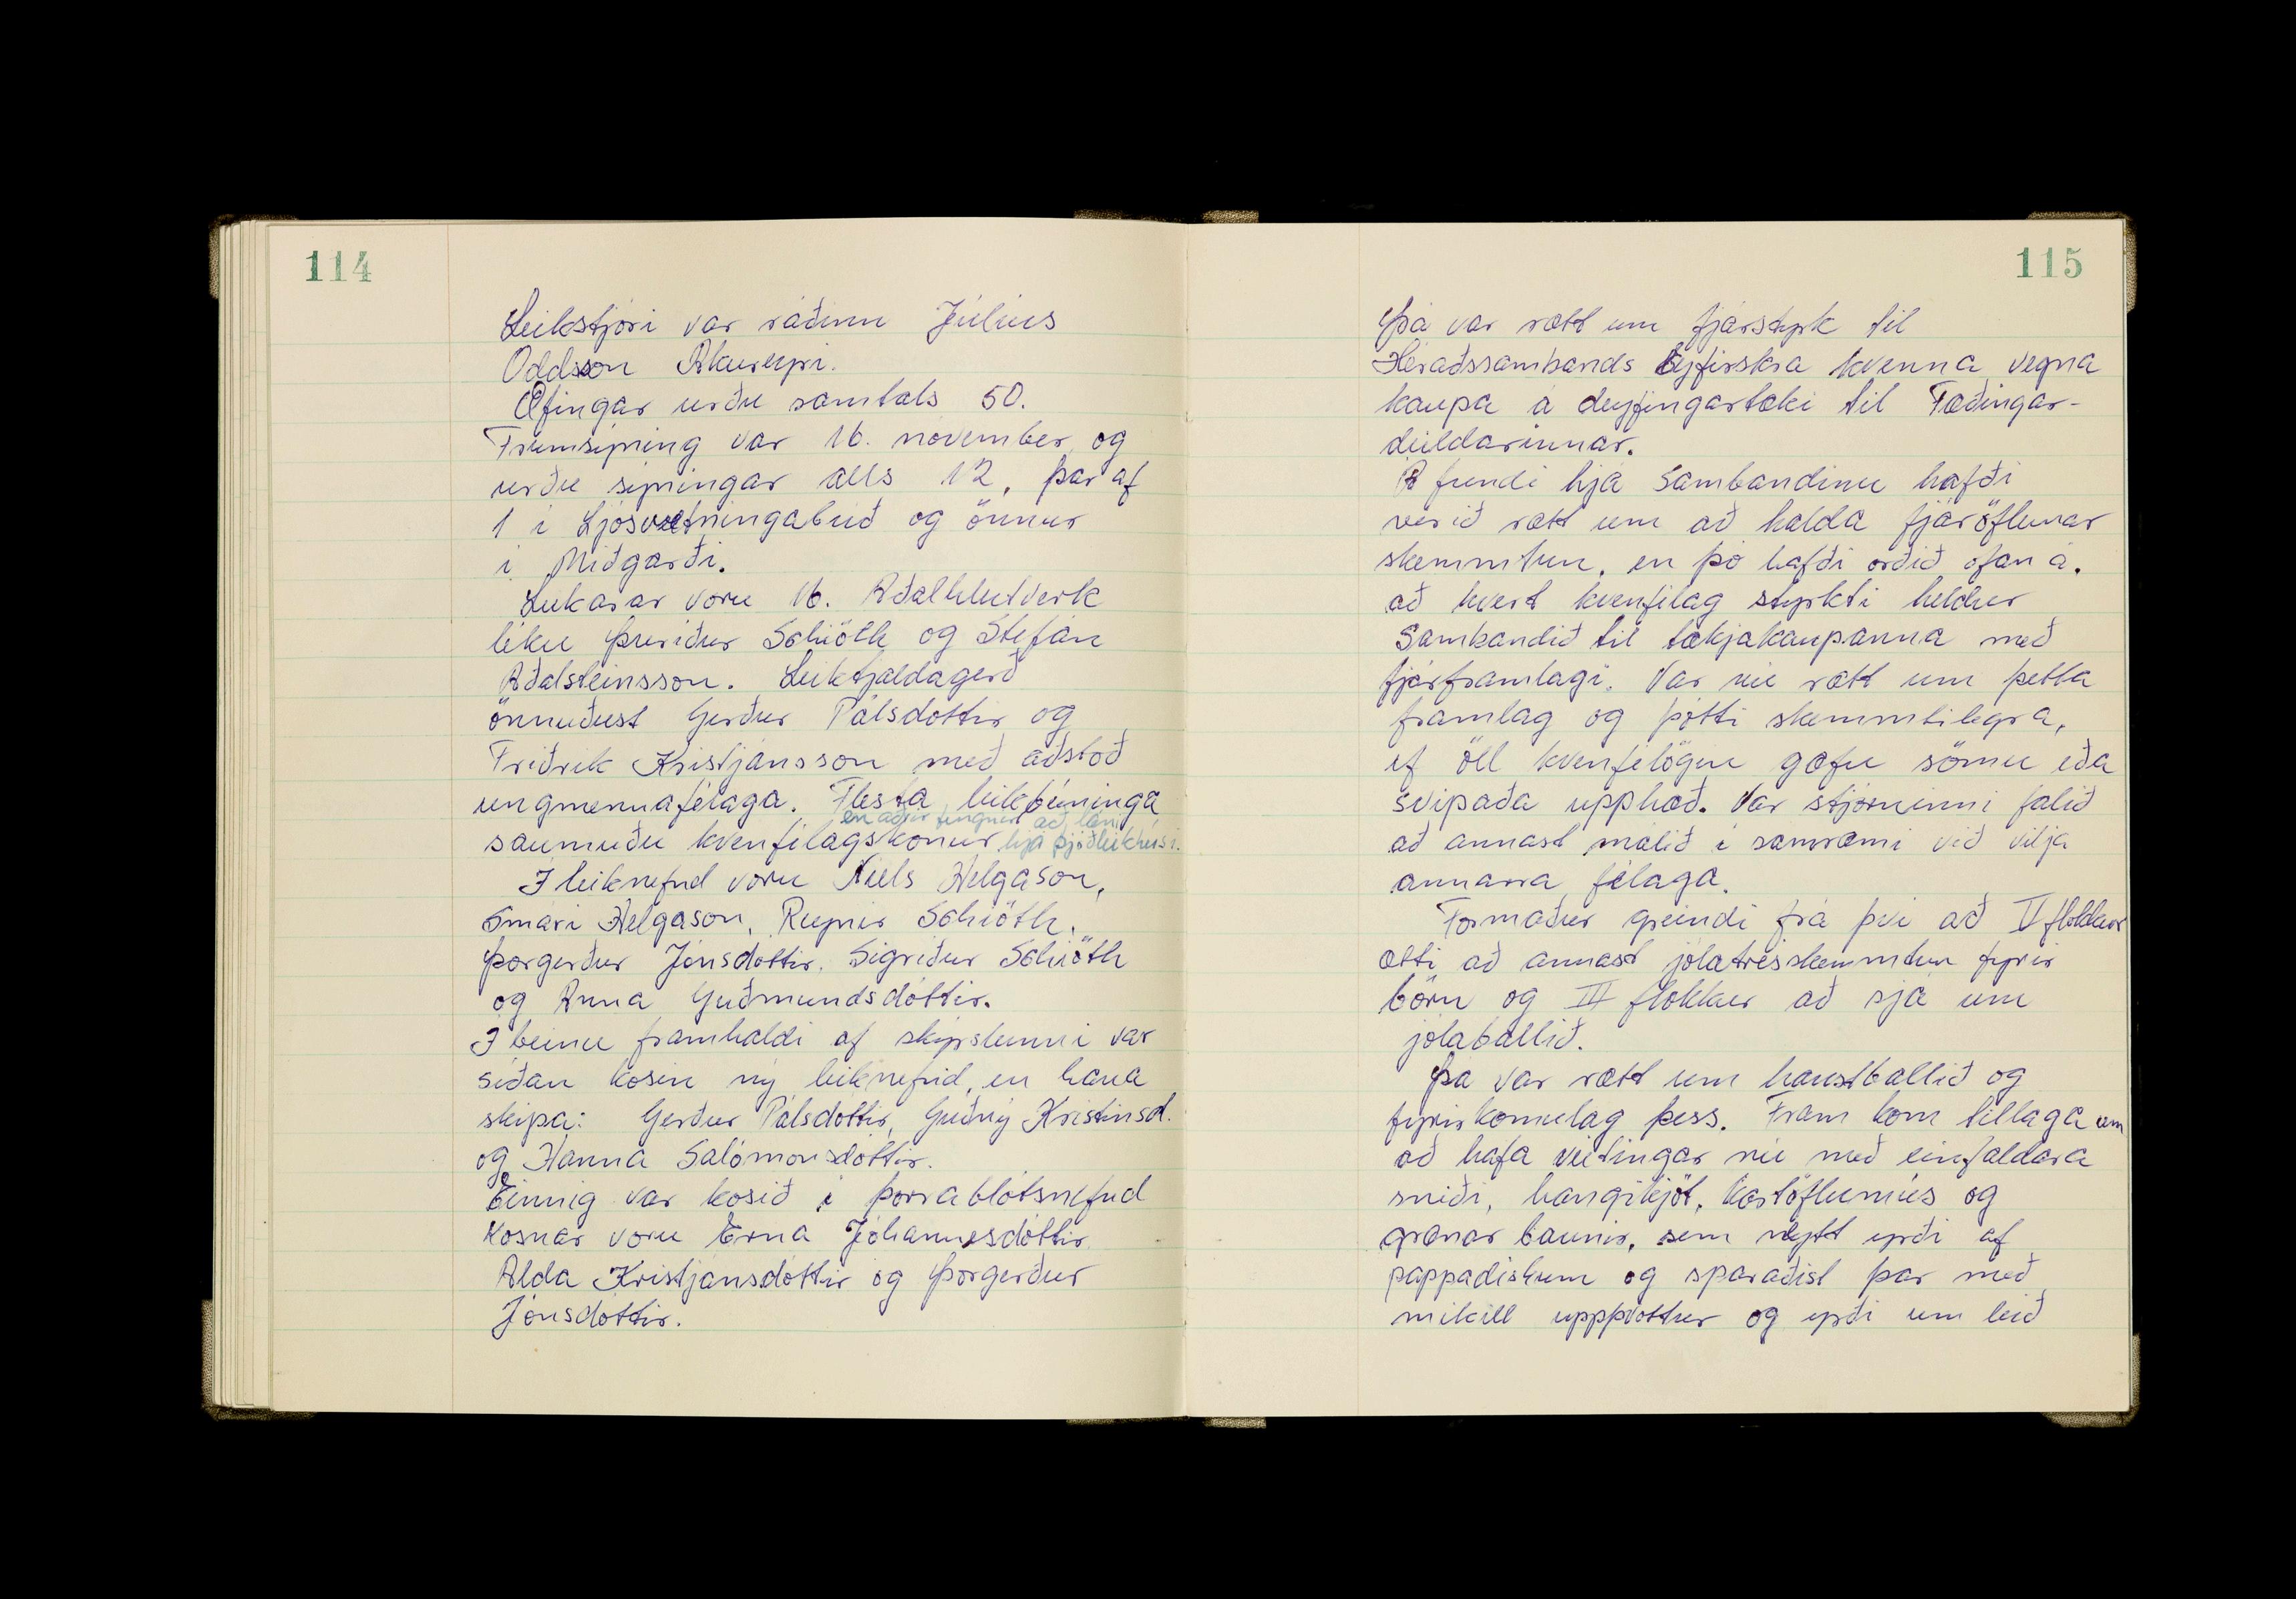 114
Leikstjóri var ráðinn Júlíus
Oddsson Akureyri.
Æfingar urðu samtals 50.
Frumsýning var 16. november og
urðu sýningar alls 12, þar af
1 í Ljósvetningabúð og önnur
í Miðgarði.
Leikarar voru 16. Aðalhlutverk
léku Þuríður Schiöth og Stefán
Aðalsteinsson. Leiktjaldagerð
önnuðust Gerður Pálsdóttir og
Friðrik Kristjánsson með aðstoð
ungmennafélaga. Flesta leikbúninga
saumuðu kvenfélagskonur en aðrir fengust að láni hjá þjóðleikhúsi.
Í leiknefnd voru Níels Helgason,
Smári Helgason, Reynir Schiöth,
Þorgerður Jónsdóttir, Sigríður Schiöth
og Anna Guðmundsdóttir.
Í beinu framhaldi af skýrslunni var
síðan kosin ný leiknefnd, en hana
skipa: Gerður Pálsdóttir, Guðný Kristinsd.
og Hanna Salómonsdóttir.
Einnig var kosið í þorrablótsnefnd
Kosnar voru Erna Jóhannesdóttir
Alda Kristjánsdóttir og Þorgerður
Jónsdóttir.
115
Þá var rætt um fjárstyrk til
Héraðssambands Eyfirskra kvenna vegna
kaupa á deyfingartæki til Fæðingar-
deildarinnar.
Á fundi hjá Sambandinu hafði
verið rætt um að halda fjáröflunar
skemmtun, en þó hafði orðið ofan á,
að hvert kvenfélag styrkti heldur
Sambandið til tækjakaupanna með
fjárframlagi. Var nú rætt um þetta
framlag og þótti skemmtilegra,
ef öll kvenfélögin gæfu sömu eða
svipaða upphæð. Var stjórninni falið
að annast málið í samræmi við vilja
annarra félaga.
Formaður greindi frá því að V flokkur
ætti að annast jólatrésskemmtun fyrir
börn og III flokkur að sjá um
jólaballið.
Þá var rætt um haustballið og
fyrirkomulag þess. Fram kom tillaga um
að hafa veitingar nú með einfaldara
sniði, hangikjöt, kartöflumús og
grænar baunir, sem neytt yrði af
pappadiskum og sparaðist þar með
mikill uppþvottur og yrði um leið